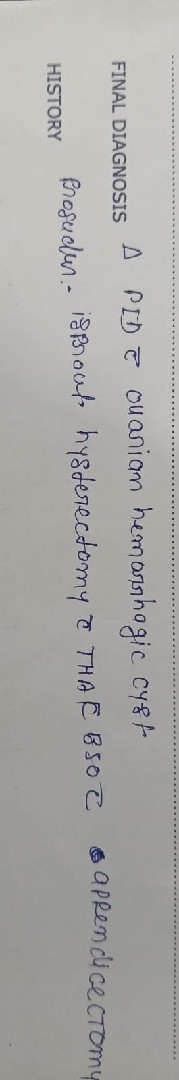 FINAL DIAGNOSIS Δ PID c̄ ovarian hemorrhagic cyst
Procedure:- hysterectomy c̄ TAH c̄ BSO c̄ appendicectomy
HISTORY